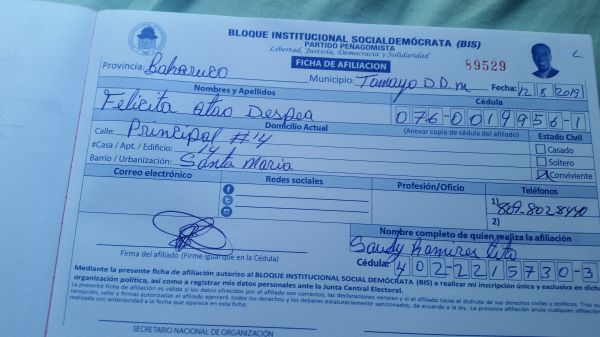 BLOQUE INSTITUCIONAL SOCIALDEMÓCRATA (BIS)
PARTIDO PEÑAGOMISTA
Libertad, Justicia, Democracia y Solidaridad
FICHA DE AFILIACION
89529
Provincia: Bahoruco Municipio: Tamayo D.D.m Fecha: 12 8 2019
Nombres y Apellidos Cédula
Felicita Despea 076-0019956-1
Domicilio Actual (Anexar copia de cédula del afiliado) Estado Civil
Calle: Principal #4
#Casa / Apt. / Edificio: 14
Barrio / Urbanización: Santa Maria
Casado
Soltero
Conviviente
Correo electrónico Redes sociales Profesión/Oficio Teléfonos
1) 809-802-8440
2)
Nombre completo de quien realiza la afiliación
Sandy Ramirez
Firma del afiliado (Firme igual que en la Cédula)
Cédula: 402-2215730-3
Mediante la presente ficha de afiliación autorizo al BLOQUE INSTITUCIONAL SOCIAL DEMÓCRATA (BIS) a realizar mi inscripción única y exclusiva en dicha
organización política, así como a registrar mis datos personales ante la Junta Central Electoral.
La presente ficha de afiliación es válida si los datos ofrecidos por el afiliado son correctos, las declaraciones veraces y si el afiliado tiene el disfrute de sus derechos civiles y políticos. Tras su
recepción, sello y firmas autorizadas el afiliado ejercerá todos los derechos y los deberes estatutariamente sancionados, de acuerdo a la ley. La presente afiliación anula cualquier afiliación
realizada con anterioridad a la fecha que aparece en esta ficha.
SECRETARIO NACIONAL DE ORGANIZACIÓN